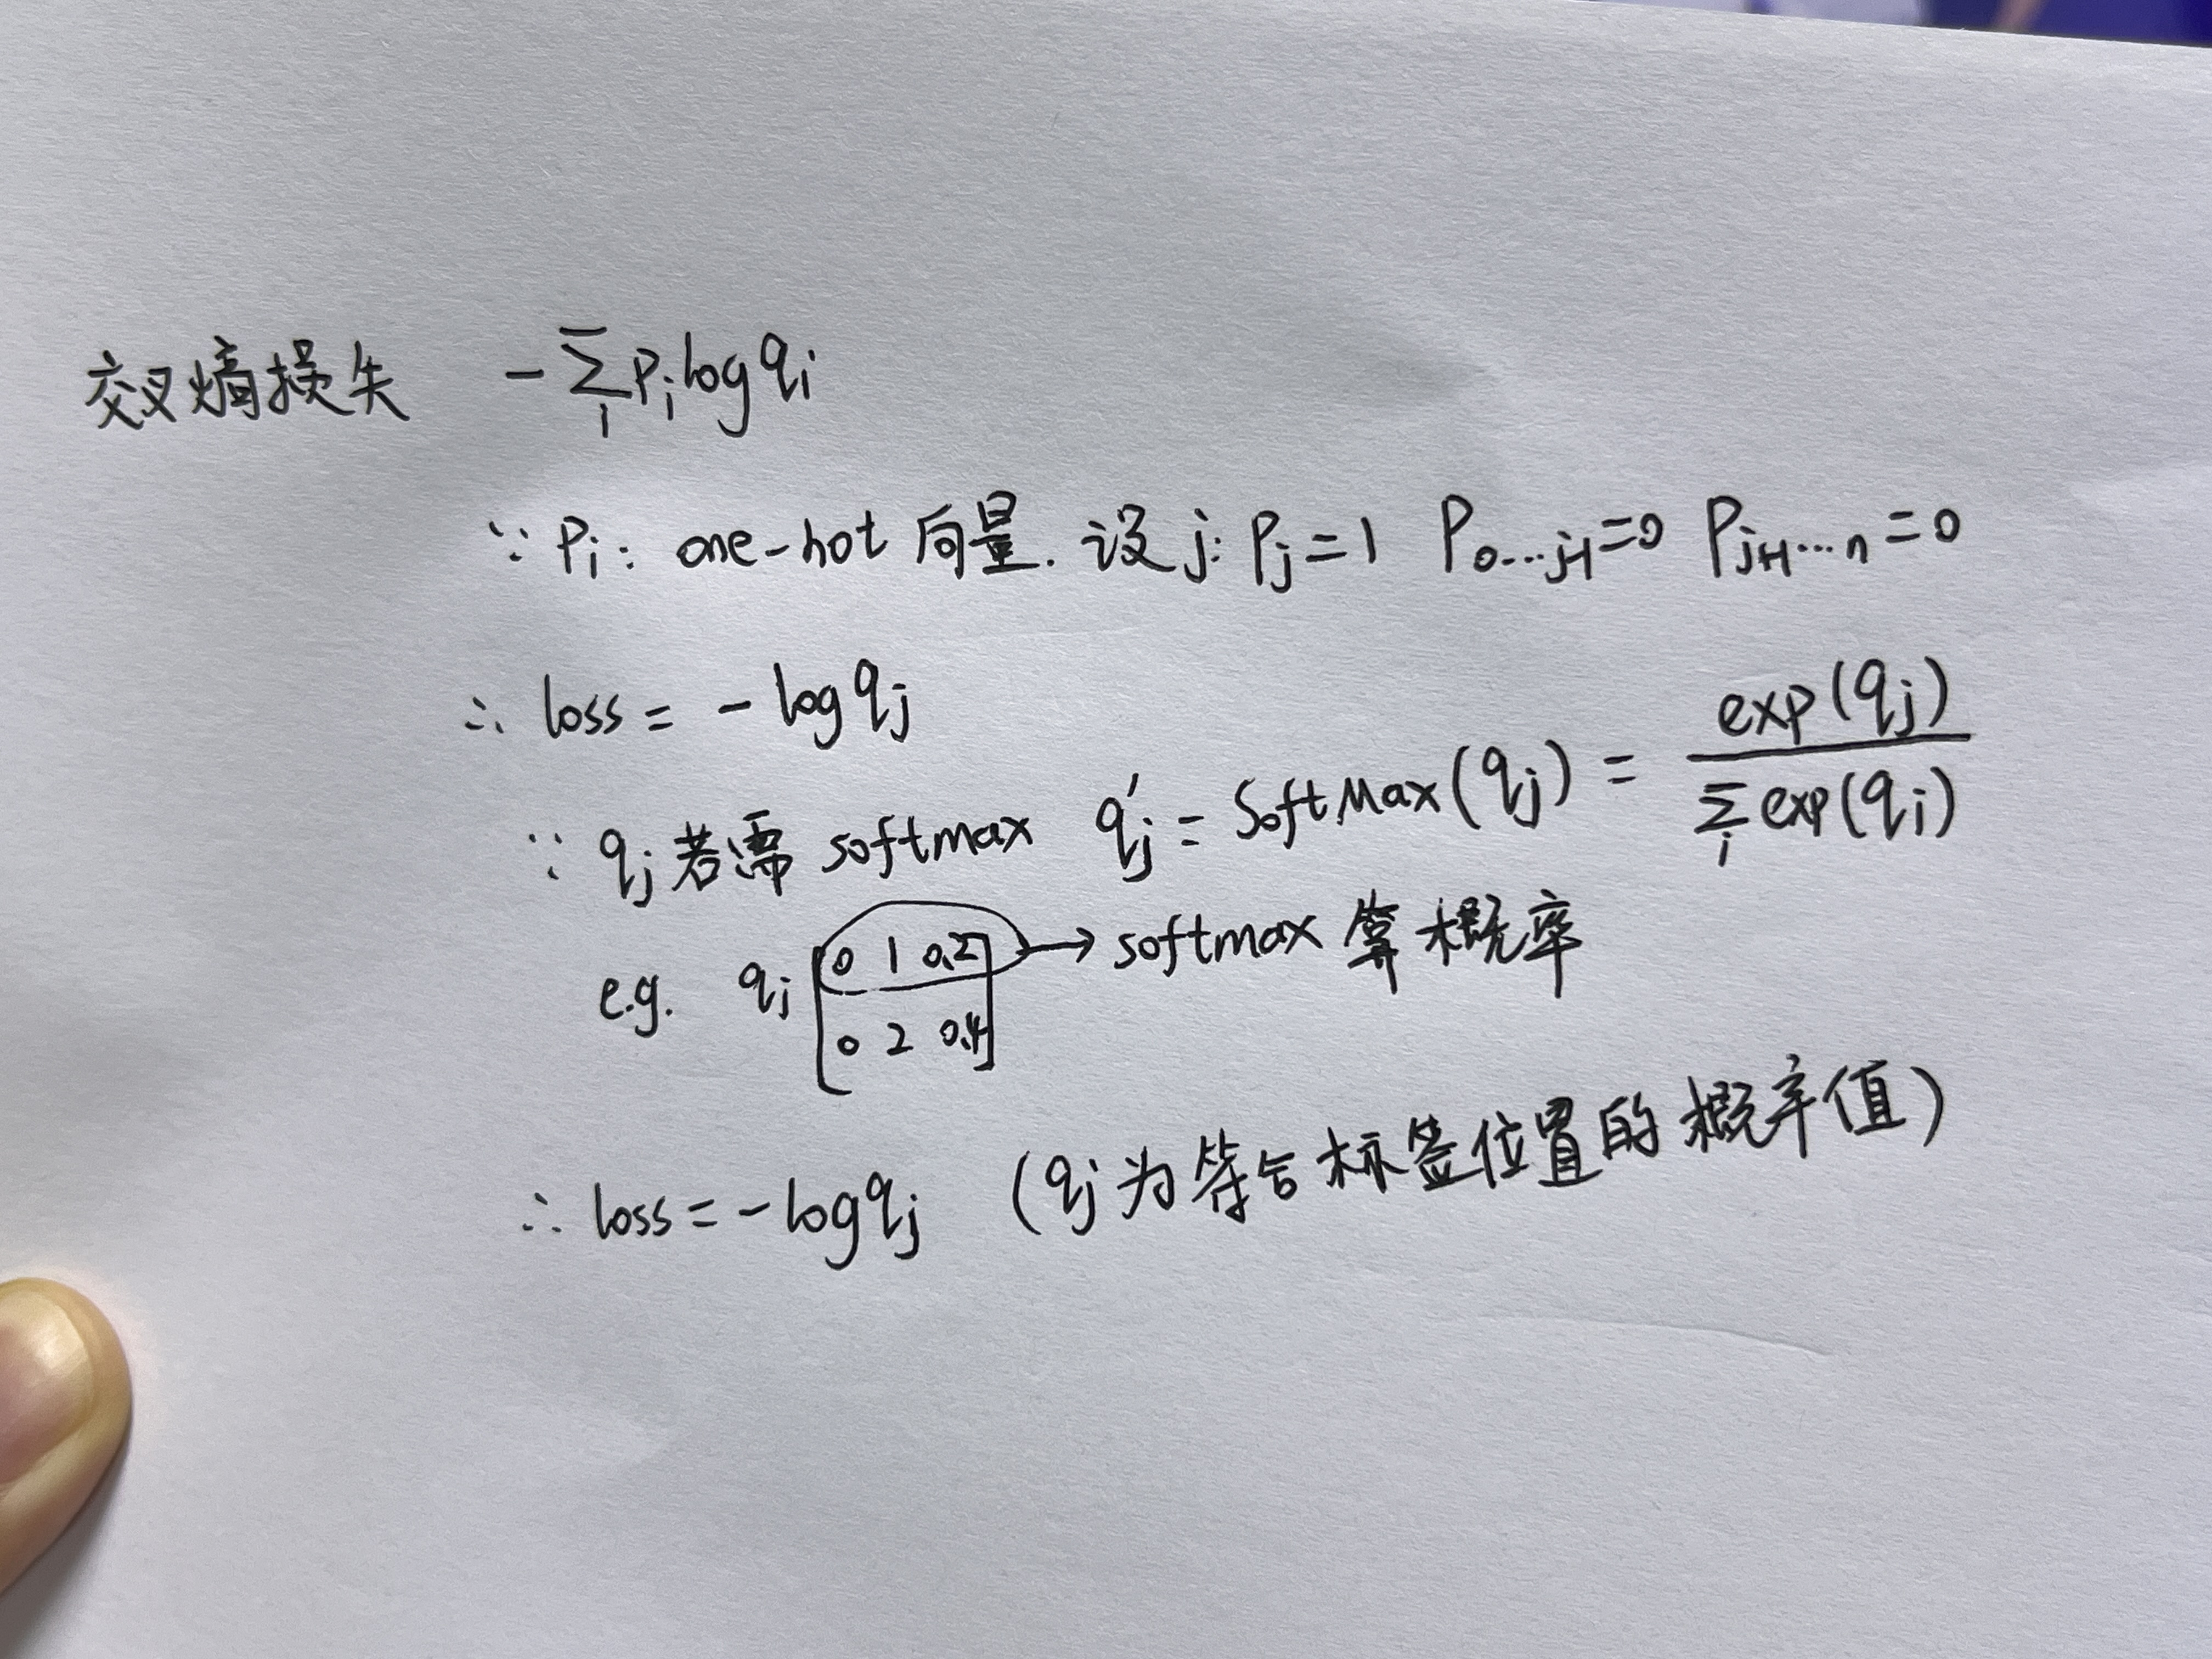 交叉熵损失 -∑_i p_i log q_i
∵ p_i: one-hot 向量. 设 j: p_j=1 P_{0...j-1}=0 P_{j+1...n}=0
∴ loss = - log q_j
∵ q_j 若需 softmax q'_j = SoftMax(q_j) = exp(q_j) / ∑_i exp(q_i)
e.g. q_j [0 1 0.2 → softmax 算概率
0 2 0.4]
∴ loss = - log q_j (q_j 为符合标签位置的概率值)